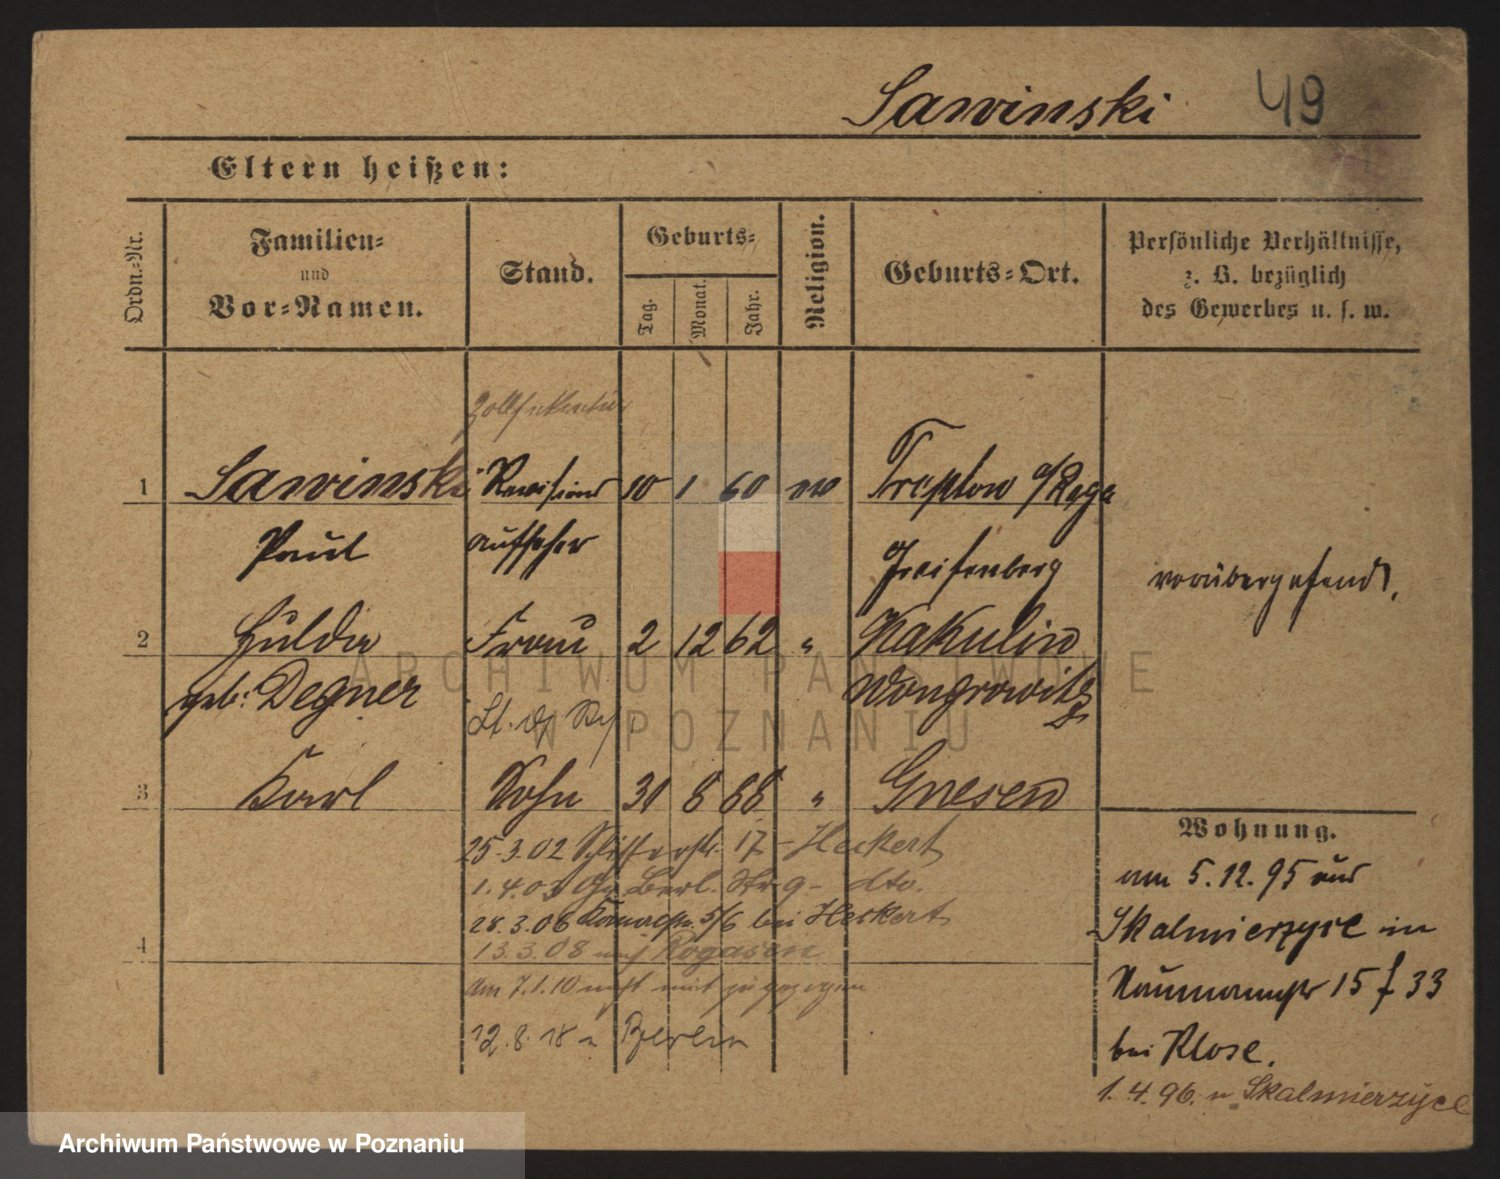 Sawinski 49
Eltern heißen:
Ordn.-Nr.
Familien-
und
Vor-Namen.
Stand.
Geburts-
Tag.
Monat.
Jahr.
Religion.
Geburts-Ort.
Persönliche Verhältnisse,
z. B. bezüglich
des Gewerbes u. s. w.
1 Sawinski Revisions 10 1 60 ev Treptow a/Rega
Paul aufseher Greifenberg
vorübergehend,
2 Hulda Frau 2 12 62 " Kakulin
geb: Degner Wongrowitz
3 Karl Sohn 31 8 88 " Gnesen
25.3.02 17 - Heckert
1.4.03 Gr. Berl. Str 9 - dto.
28.3.06 5/6 bei Heckert
4 13.3.08 nach Rogasen
Am 7.1.10 nicht mit zugezogen
12.8.18 n Berlin
Wohnung.
am 5.12.95 aus
Skalmierzyce in
Naumannstr 15 f 33
bei Klose.
1.4.96. n Skalmierzyce
ARCHIWUM PAŃSTWOWE
W POZNANIU
Archiwum Państwowe w Poznaniu